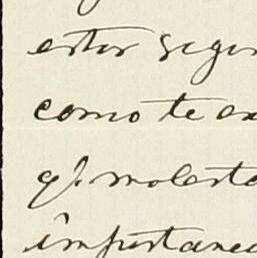 estos segu
como te ex
qe. molesta
importanc